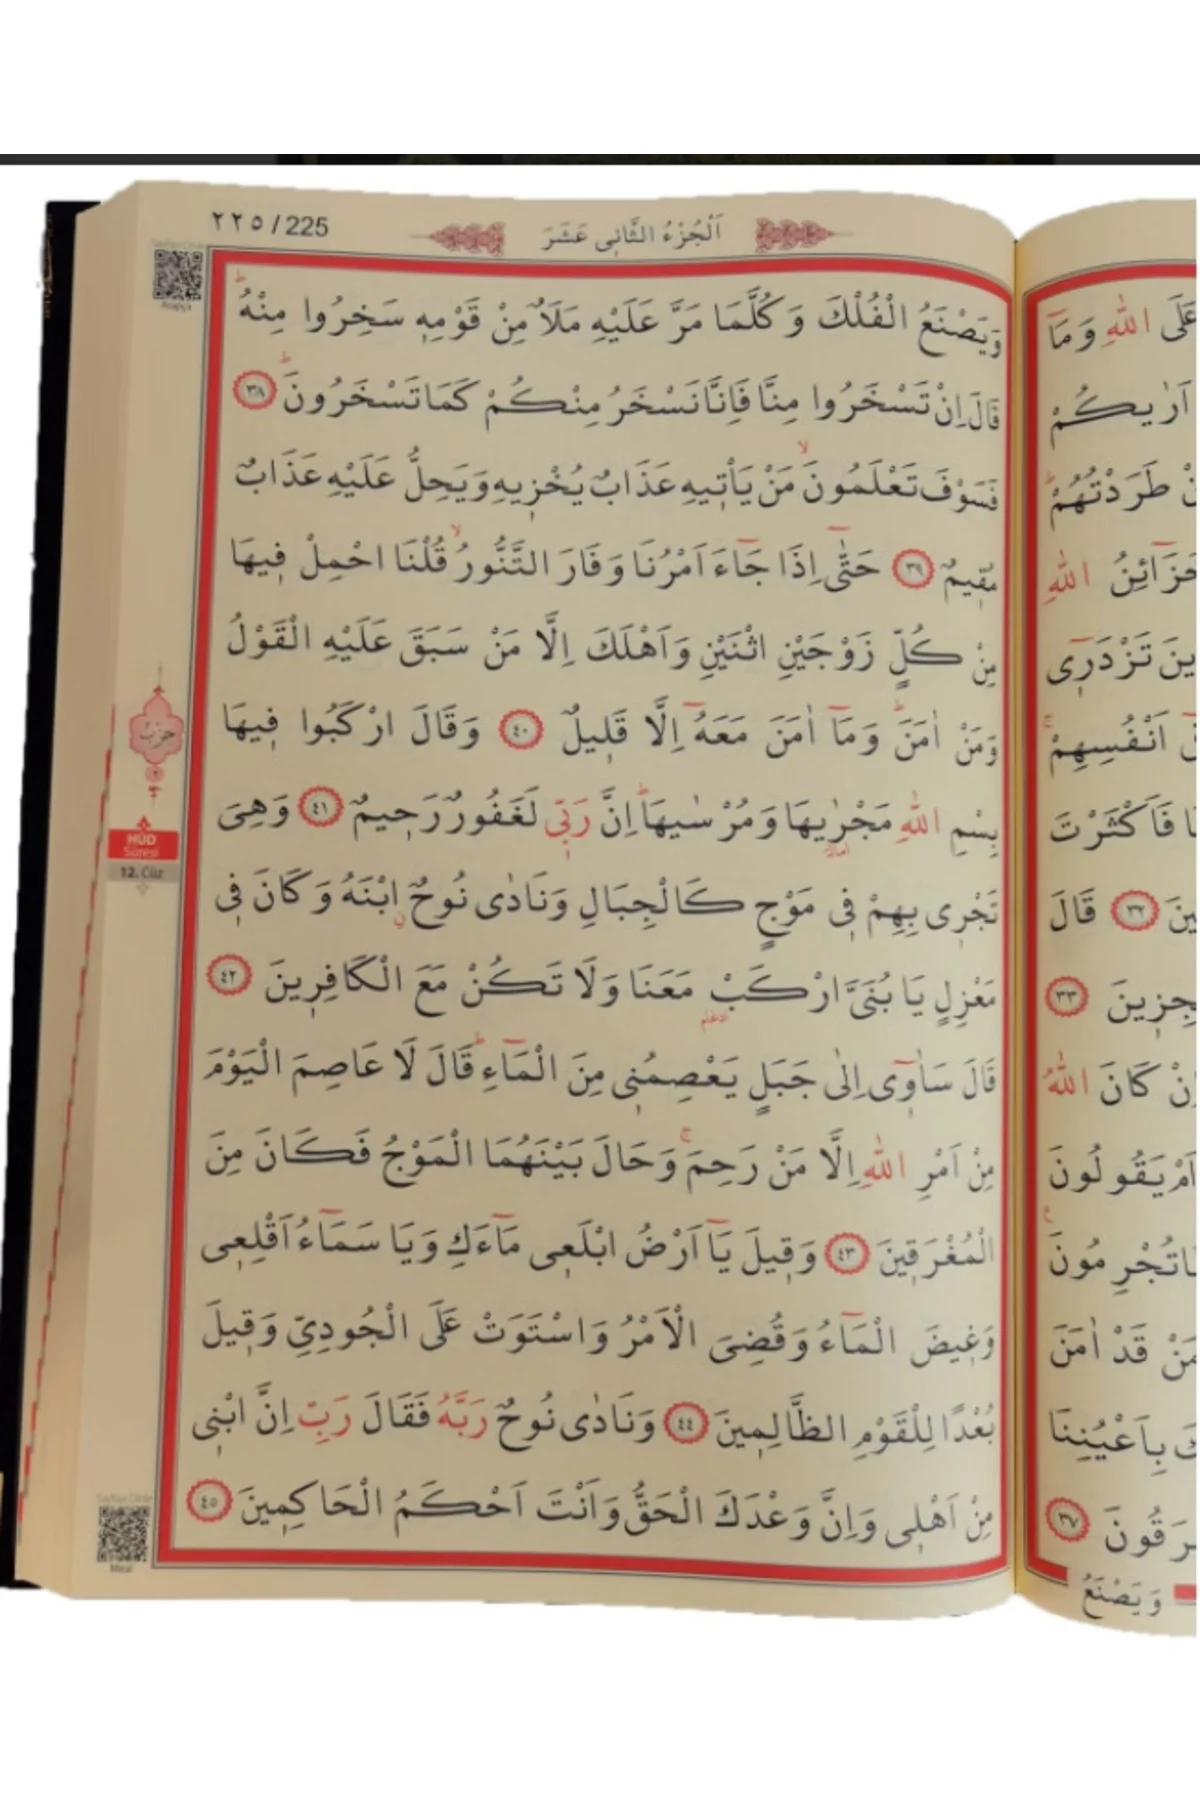 ٢٢٥ / 225
اَلْجُزْءُ الثَّانِى عَشَرَ
وَيَصْنَعُ الْفُلْكَ وَكُلَّمَا مَرَّ عَلَيْهِ مَلَاٌ مِنْ قَوْمِهِ سَخِرُوا مِنْهُۜ
قَالَ اِنْ تَسْخَرُوا مِنَّا فَاِنَّا نَسْخَرُ مِنْكُمْ كَمَا تَسْخَرُونَۜ ٣٨
فَسَوْفَ تَعْلَمُونَۙ مَنْ يَأْتِيهِ عَذَابٌ يُخْزِيهِ وَيَحِلُّ عَلَيْهِ عَذَابٌ
مُقِيمٌ ٣٩ حَتّٰٓى اِذَا جَٓاءَ اَمْرُنَا وَفَارَ التَّنُّورُۙ قُلْنَا احْمِلْ فِيهَا
مِنْ كُلٍّ زَوْجَيْنِ اثْنَيْنِ وَاَهْلَكَ اِلَّا مَنْ سَبَقَ عَلَيْهِ الْقَوْلُ
وَمَنْ اٰمَنَۜ وَمَٓا اٰمَنَ مَعَهُٓ اِلَّا قَلِيلٌ ٤٠ وَقَالَ ارْكَبُوا فِيهَا
بِسْمِ اللّٰهِ مَجْرٰۭيهَا وَمُرْسٰيهَاۜ اِنَّ رَبِّى لَغَفُورٌ رَحِيمٌ ٤١ وَهِىَ
تَجْرِى بِهِمْ فِى مَوْجٍ كَالْجِبَالِ وَنَادٰى نُوحٌ ابْنَهُ وَكَانَ فِى
مَعْزِلٍ يَا بُنَىَّ ارْكَبْ مَعَنَا وَلَا تَكُنْ مَعَ الْكَافِرِينَ ٤٢
قَالَ سَاٰوِٓى اِلٰى جَبَلٍ يَعْصِمُنِى مِنَ الْمَٓاءِۜ قَالَ لَا عَاصِمَ الْيَوْمَ
مِنْ اَمْرِ اللّٰهِ اِلَّا مَنْ رَحِمَۚ وَحَالَ بَيْنَهُمَا الْمَوْجُ فَكَانَ مِنَ
الْمُغْرَقِينَ ٤٣ وَقِيلَ يَٓا اَرْضُ ابْلَعِى مَٓاءَكِ وَيَا سَمَٓاءُ اَقْلِعِى
وَغِيضَ الْمَٓاءُ وَقُضِىَ الْاَمْرُ وَاسْتَوَتْ عَلَى الْجُودِىِّ وَقِيلَ
بُعْدًا لِلْقَوْمِ الظَّالِمِينَ ٤٤ وَنَادٰى نُوحٌ رَبَّهُ فَقَالَ رَبِّ اِنَّ ابْنِى
مِنْ اَهْلِى وَاِنَّ وَعْدَكَ الْحَقُّ وَاَنْتَ اَحْكَمُ الْحَاكِمِينَ ٤٥
حزب
HÛD
Sûresi
12. Cüz
Meal
عَلَى اللّٰهِ وَمَٓا
اَرٰيكُمْ
طَرَدْتُهُمْۜ
خَزَٓائِنُ اللّٰهِ
تَزْدَرِٓى
اَنْفُسِهِمْۚ
فَاَكْثَرْتَ
٣٢ قَالَ
٣٣
كَانَ اللّٰهُ
اَمْ يَقُولُونَ
تُجْرِمُونَ
قَدْ اٰمَنَ
بِاَعْيُنِنَا
٣٧
وَيَصْنَعُ